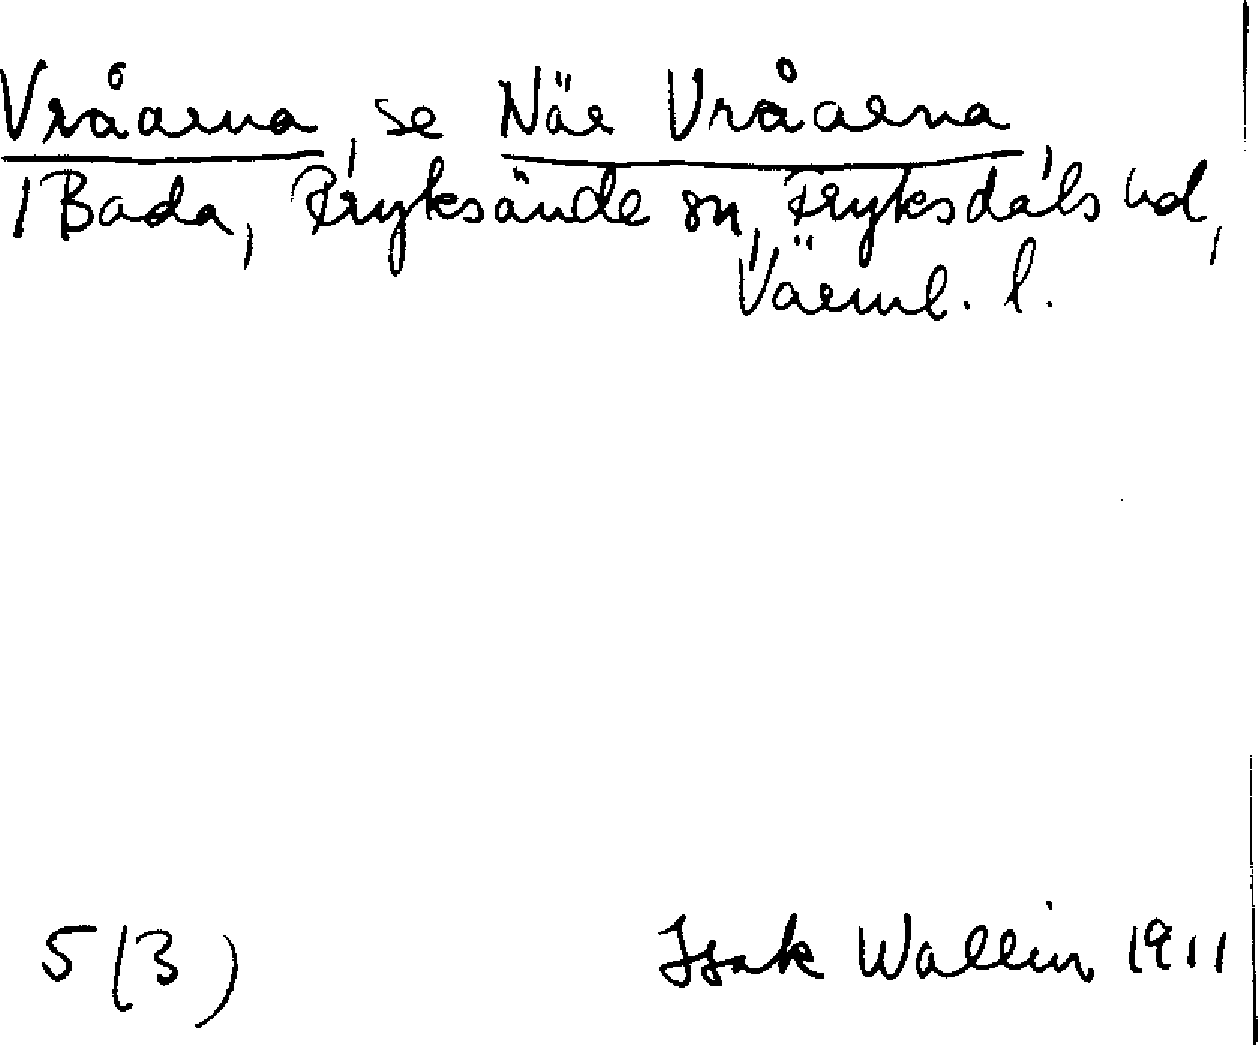 Vråarna, se När Vråarna,
1 Bada, Fryksände sn, Fryksdals hd,
Värml. l.
5 (3) Isak Wallin 1911